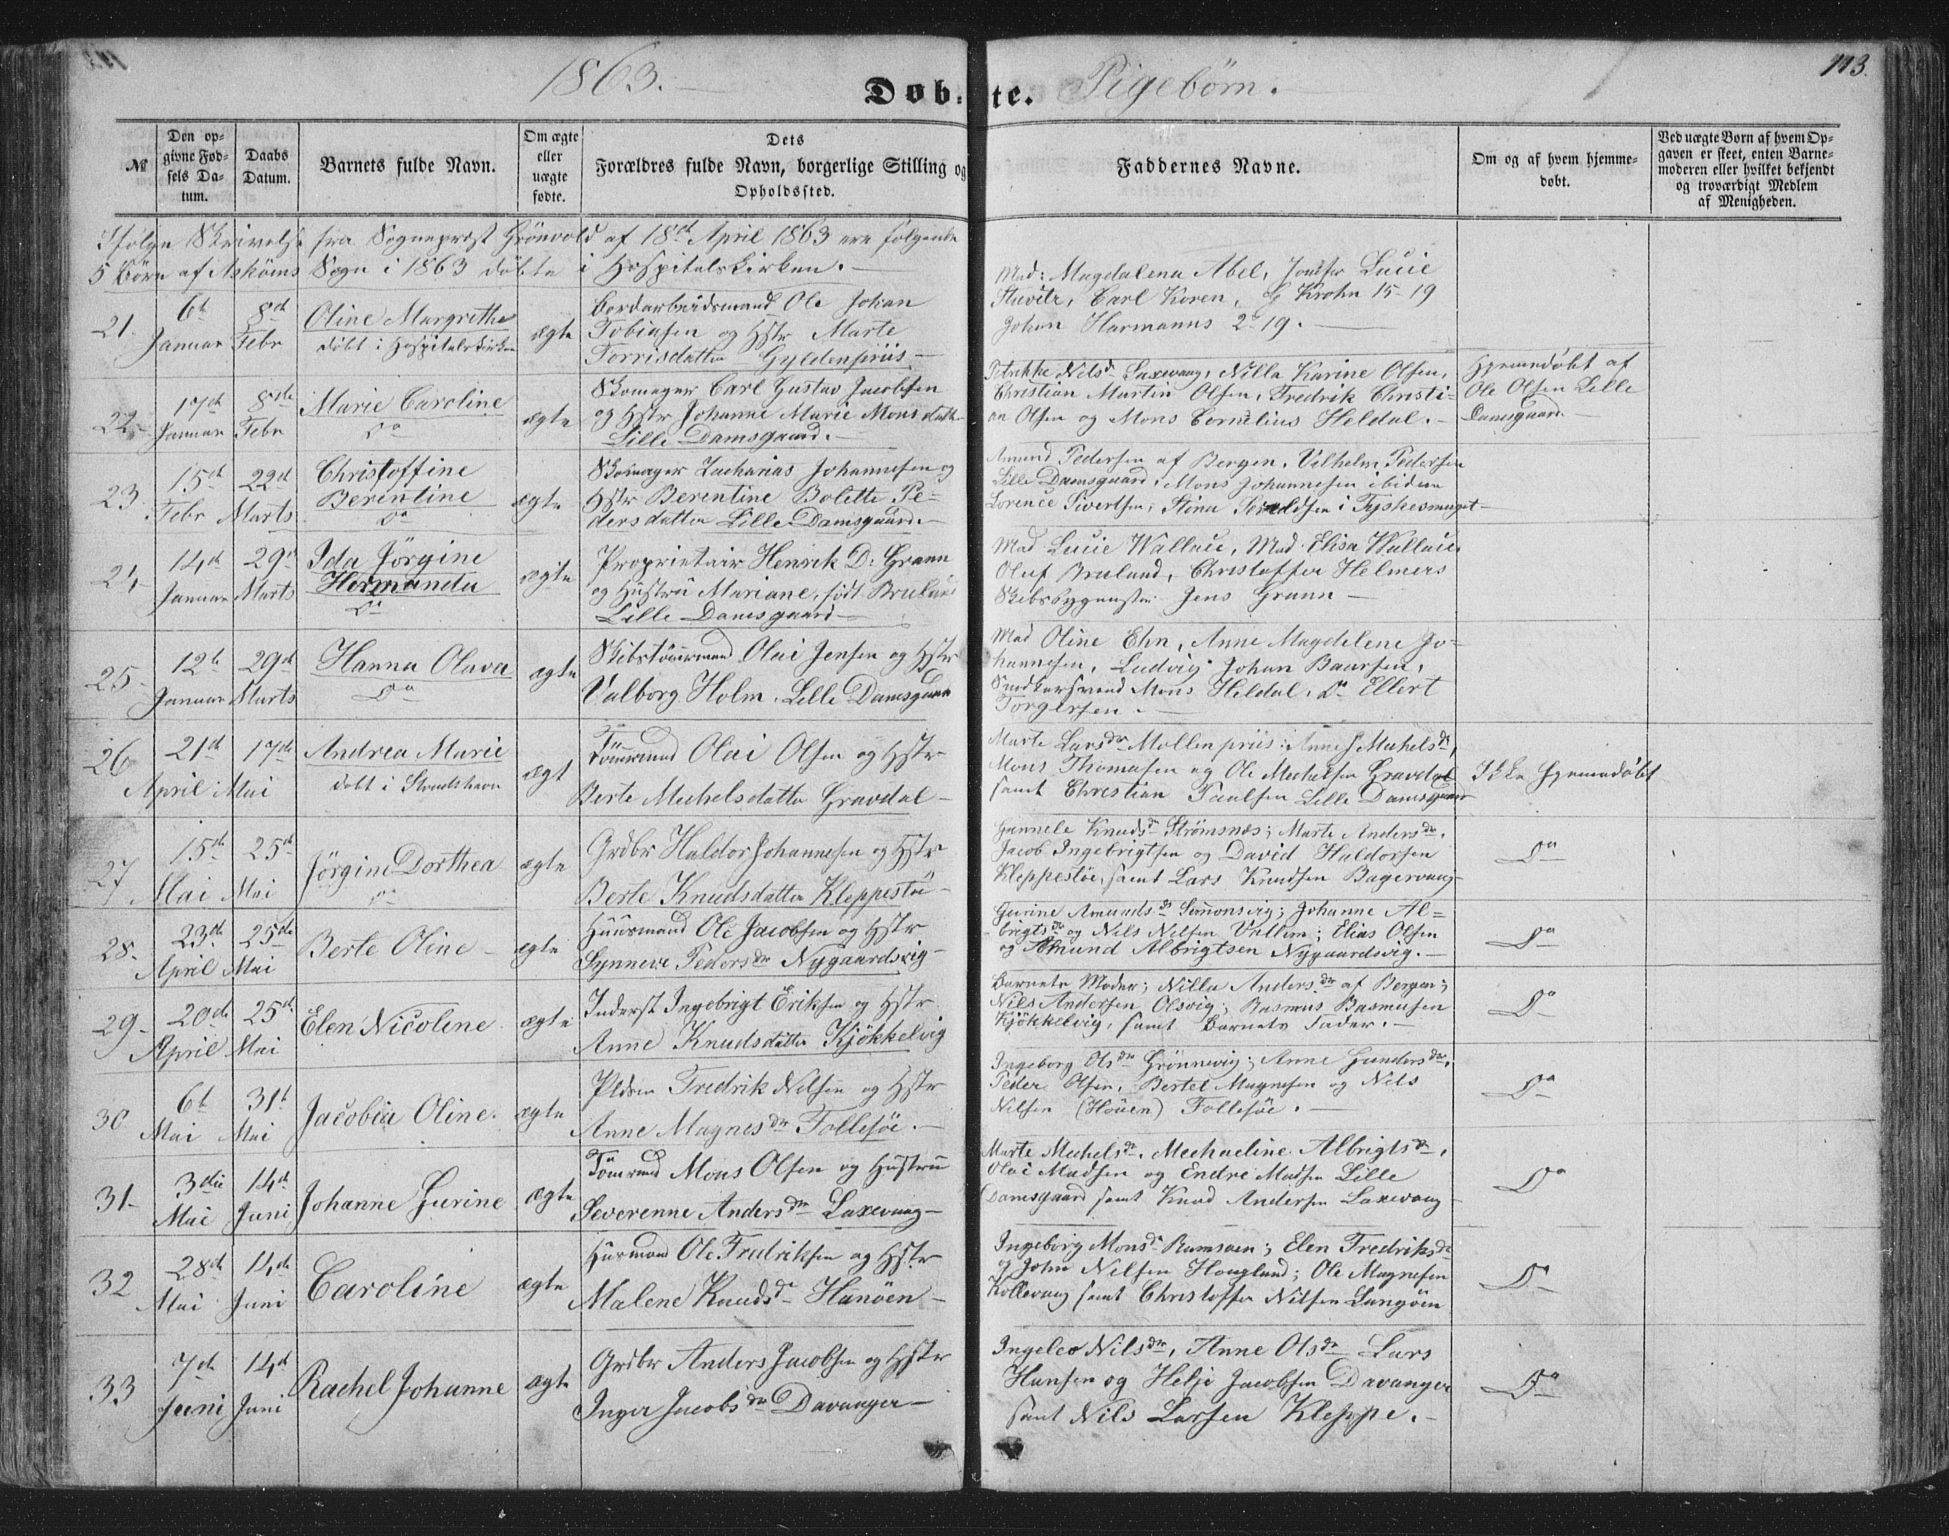 1863.
Døbte. Pigebørn.
113.
No
Den opgivne Fødsels Datum.
Daabs Datum.
Barnets fulde Navn.
Om ægte eller uægte fødte.
Dets Forældres fulde Navn, borgerlige Stilling og Opholdssted.
Faddernes Navne.
Om og af hvem hjemmedøbt.
Ved uægte Børn af hvem Opgaven er skeet, enten Barnemoderen eller hvilket bekjendt og troværdigt Medlem af Menigheden.
Ifølge Skrivelse fra Sogneprest Grönvold af 18de April 1863 ere følgende
5 Börn af Askøens Sogn i 1863 döbte i Hospitalskirken.
21. 6te Januar 8de Febr
Oline Margrethe
döbt i Hospitalskirken
ægte
Ole Johan
Tobiasen og Hstr Marte
Torrisdatter Gyldenpriis
Mad: Magdalena Abel, Jomfru Lucie
Carl Koren, Krohn 15-19
Johan Harmanns 2-19.
22. 17de Januar 8de Febr
Marie Caroline
Do
ægte
Skomager Carl Gustav Jacobsen
og Hstr Johanne Marie Monsdatter
Lille Damsgaard.
Petrikke Nilsdr Laxevaag, Nilla Karine Olsen,
Christian Martin Olsen, Fredrik Christi-
an Olsen og Mons Cornelius Heldal.
Hjemmedöbt af
Ole Olsen Lille
Damsgaard.
23. 15de Febr 22de Marts
Christoffine
Berentine
Do
ægte
Skomager Zacharias Johannesen og
Hstr Berentine Bolette Pe-
dersdatter Lille Damsgaard.
Amund Pedersen af Bergen, Vilhelm Pedersen
Lille Damsgaard, Mons Johannesen ibidem
Lorence Sivertsen, Stina i Tyskesmuget
24. 14de Januar 29de Marts
Ida Jörgine
Hermanda
Do
ægte
Proprietair Henrik D. Grann
og Hustru Mariane, født Bruland
Lille Damsgaard
Mad Lucie Wallace, Mad Elisa Wallace
Oluf Bruland, Christoffer Helmers
Skibsbygmester Jens Grann
25. 12te Januar 29de Marts
Hanna Olava
Do
ægte
Skibstömmermand Olai Jensen og Hstr
Valborg Holm. Lille Damsgaard
Mad Oline Ehn, Anne Magdelene Jo-
hannesen, Ludvig Johan Baarsen,
Snedkersvend Mons Heldal, Do Ellert
Torgersen.
26 21de April 17de Mai
Andrea Marie
döbt i Strudshavn
ægt
Tömmermand Olai Olsen og Hstr
Berte Mechelsdatter Gravdal
Marte Larsdr Mollenpriis; Anne J Mechelsdr,
Mons Thomasen og Ole Mechelsen Gravdal
samt Christian Paulsen Lille Damsgaard
Ikke Hjemmedöbt
27 15de Mai 25de Mai
Jörgine Dorthea
Do
ægte
Grdbr Haldor Johannesen og Hstr
Berte Knudsdatter Kleppestöe
Gunnele Knudsdr Strömsnæs; Marte Andersdr,
Jacob Ingebrigtsen og David Haldorsen
Kleppestöe, samt Lars Knudsen Bagervaag
Do
28. 23de April 25de Mai
Berte Oline
ægte
Huusmand Ole Jacobsen og Hstr
Synneve Pedersdr Nygaardsvig
Gurine Amundsdr Simonsvig; Johanne Al-
brigtsdr og Nils Nilsen Vallem; Elias Olsen
og Amund Albrigtsen Nygaardsvig.
Do
29. 20de April 25de Mai
Elen Nicoline
ægte
Inderst Ingebrigt Eriksen og Hstr
Anne Knudsdatter Kjökkelvig
Barnets Moder; Nilla Andersdr af Bergen;
Nils Andersen Olsvig; Rasmus Rasmusen
Kjökkelvig, samt Barnets Fader.
Do
30 6te Mai 31te Mai
Jacobia Oline.
ægte
Pldsm Fredrik Nilsen og Hstr
Anne Magnesdr Follesöe.
Ingeborg Olsdr Grönnevig; Anne Gundersdr,
Peder Olsen, Bertel Magnesen og Nils
Nilsen (Höuen) Follesöe.
Do
31. 3die Mai 14de Juni
Johanne Gurine
ægte
Tömmermd Mons Olsen og Hustru
Severenne Andersdr Laxevaag
Marte Mechelsdr, Mechaeline Albrigtsdr,
Olai Madsen og Endre Madsen Lille
Damsgaard samt Knud Andersen Laxevaag
Do
32 28de Mai 14de Juni
Caroline
ægte
Huusmand Ole Fredriksen og Hstr
Malene Knudsdr Hanöen
Ingeborg Monsdr Ramsöen; Elen Fredriksdr
og John Nilsen Hougland; Ole Magnesen
Kollevaag samt Christoffer Nilsen Langöen
Do
33 7de Juni 14de Juni
Rachel Johanne
ægte
Grdbr Anders Jacobsen og Hstr
Inger Jacobsdr Davanger
Ingeleo Nilsdr, Anne Olsdr Lars
Hansen og Helje Jacobsen Davanger
samt Nils Larsen Kleppe.
Do